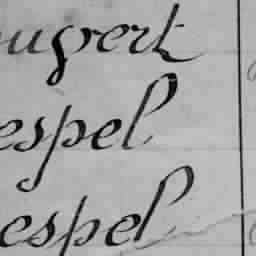 ouvert
espel
espel